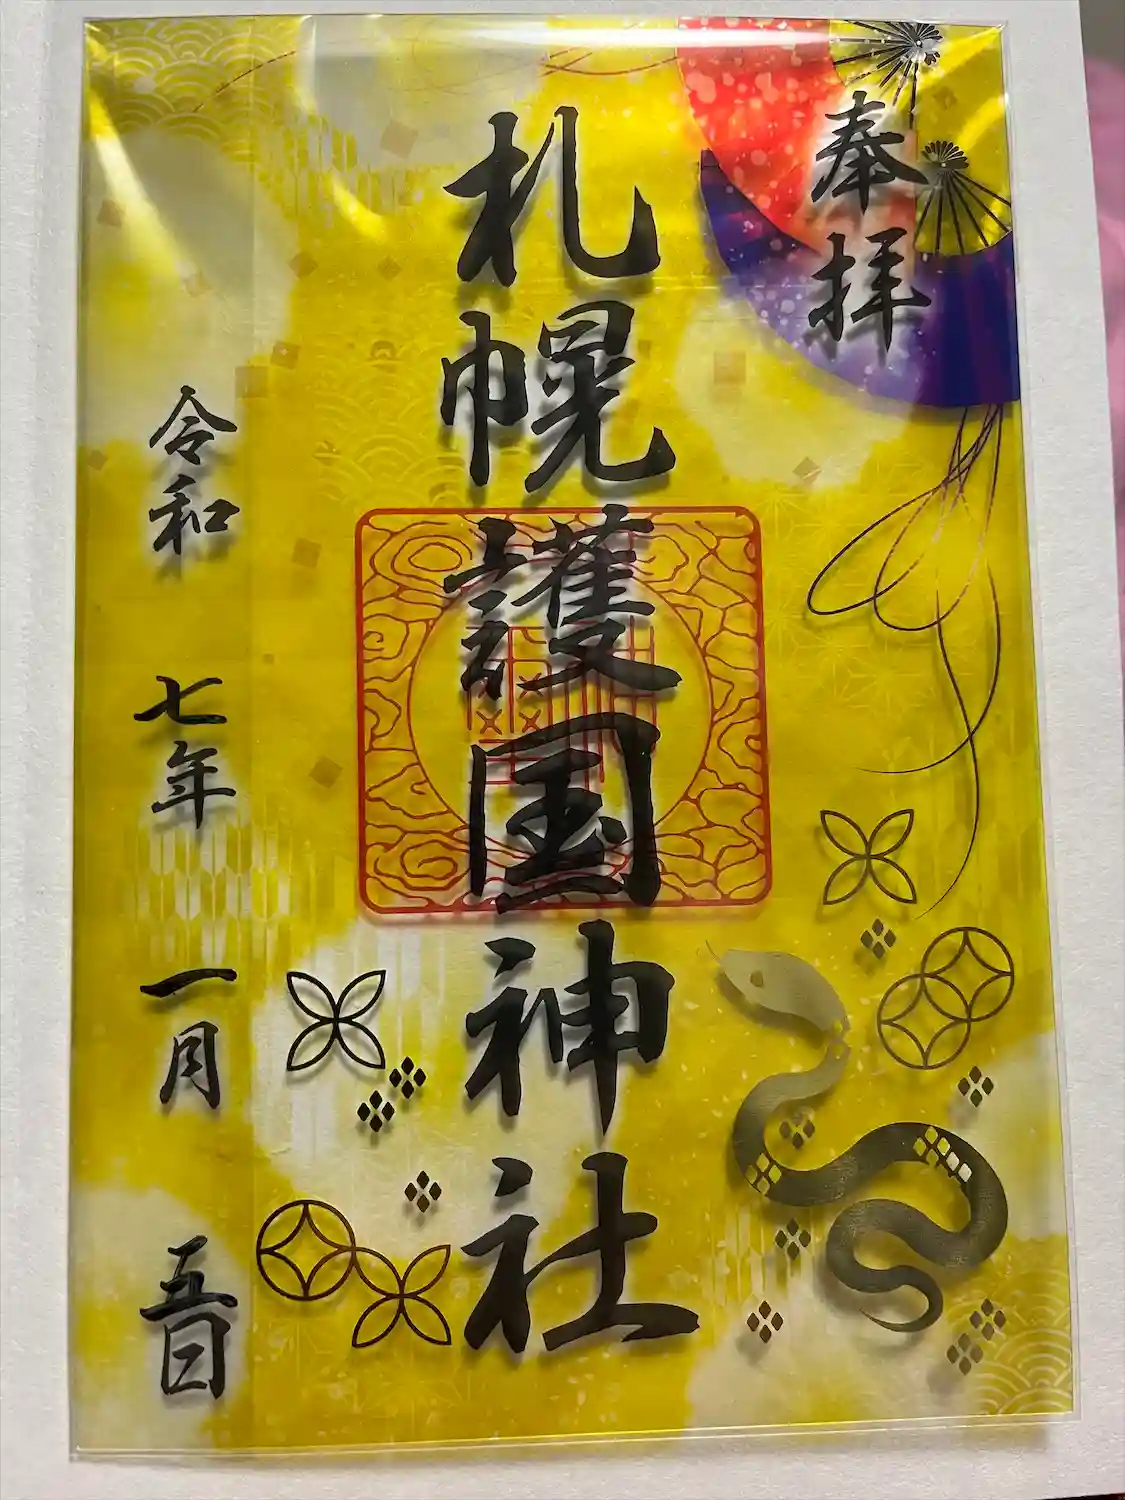 奉拝
札幌護国神社
令和 七年 一月 五日